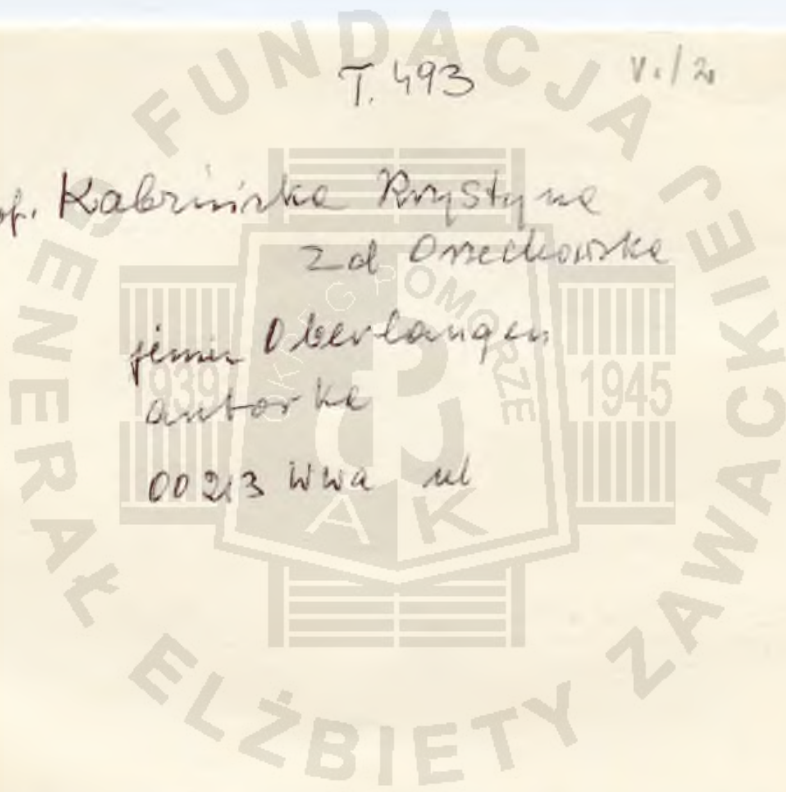 T. 493 V./2
of. Kabzińska Krystyna
zd Orzechowska
jeniec Oberlangen
autorka
00213 Wwa ul
FUNDACJA GENERAŁ ELŻBIETY ZAWACKIEJ
OKRĘG POMORZE
1939 1945
AK